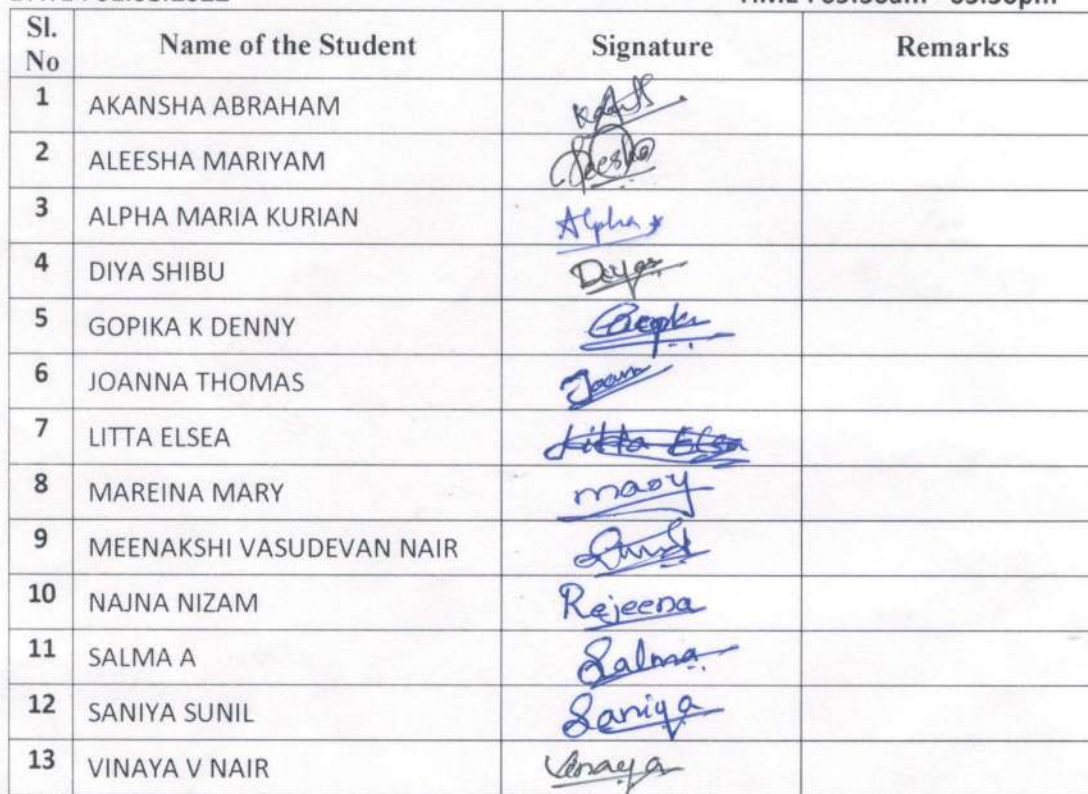 Sl. No Name of the Student Signature Remarks
1 AKANSHA ABRAHAM
2 ALEESHA MARIYAM
3 ALPHA MARIA KURIAN Alpha
4 DIYA SHIBU Diya
5 GOPIKA K DENNY
6 JOANNA THOMAS
7 LITTA ELSEA Litta Elsa
8 MAREINA MARY mary
9 MEENAKSHI VASUDEVAN NAIR
10 NAJNA NIZAM Rejeena
11 SALMA A Salma
12 SANIYA SUNIL Saniya
13 VINAYA V NAIR Vinaya